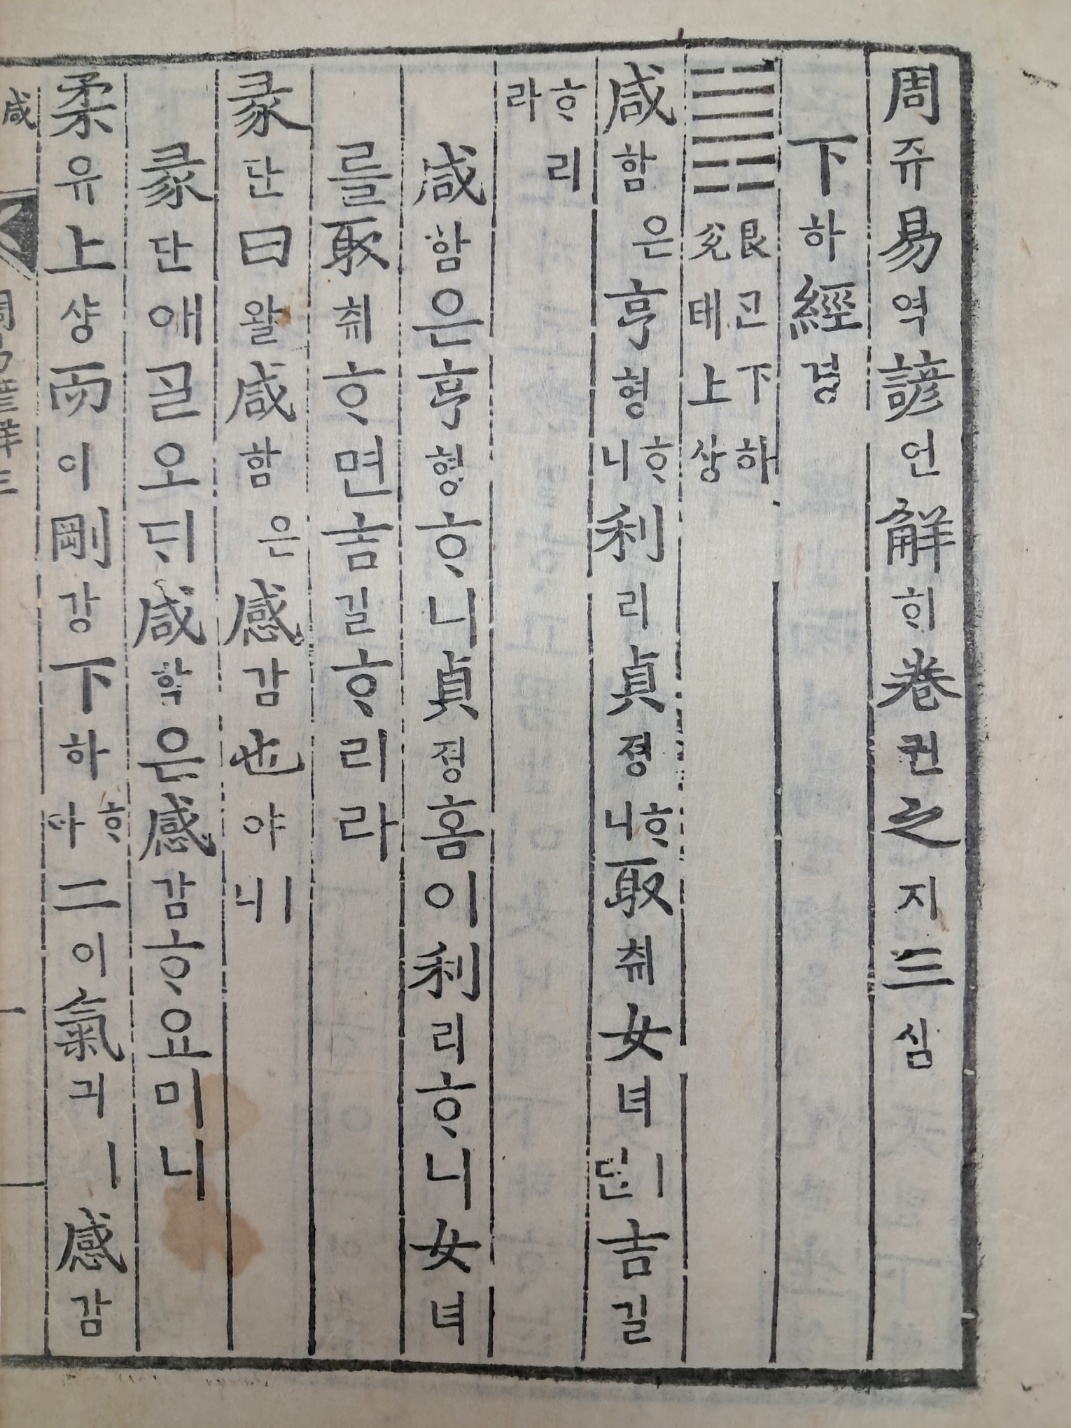 周쥬易역諺언解ᄒᆡ卷권之지三삼
下하經경
䷞ 艮ᄀᆞᆫ下하 兌태上샹
咸함은亨형ᄒᆞ니利리貞졍ᄒᆞ니取취女녀ㅣ면吉길
ᄒᆞ리라
咸함은亨형ᄒᆞ니貞졍홈이利리ᄒᆞ니女녀
를取취ᄒᆞ면吉길ᄒᆞ리라
彖단曰왈咸함은感감也야ㅣ니
彖단애ᄀᆞᆯ오ᄃᆡ咸함은感감ᄒᆞ요미니
柔유上샹而이剛강下하ᄒᆞ야二이氣긔ㅣ感감
咸